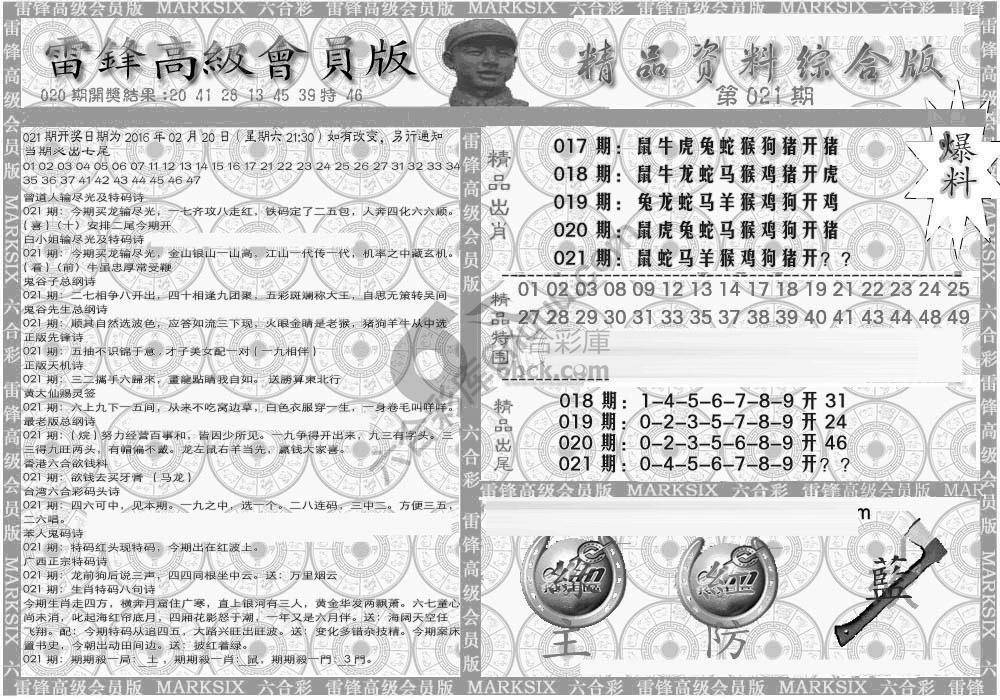 雷锋高级会员版 MARKSIX 六合彩 雷锋高级会员版 MARKSIX 六合彩 雷锋高级会员版 MARKSIX 六合彩 雷锋高级会员版
雷鋒高級會員版
精品资料综合版
020期開獎結果:20 41 28 13 45 39特 46
第 021 期
021期开奖日期为 2016 年 02 月 20 日 ( 星期六 21:30 ) 如有改变, 另行通知
当期必出七尾
01 02 03 04 05 06 07 11 12 13 14 15 16 17 21 22 23 24 25 26 27 31 32 33 34
35 36 37 41 42 43 44 45 46 47
曾道人输尽光及特码诗
021 期：今期买龙输尽光，一七齐攻八走红，铁码定了二五包，人奔四化六六顺。
{ 喜 }（十）安排二尾今期开
白小姐输尽光及特码诗
021 期：今期买龙输尽光，金山银山一山高，江山一代传一代，机率之中藏玄机。
{ 看 }（前）牛虽忠厚常受鞭
鬼谷子总纲诗
021 期：二七相争八开出，四十相逢九团聚，五彩斑斓称大王，自思无策转吴间
鬼谷先生总纲诗
021 期：顺其自然选波色，应答如流三下现，火眼金睛是老猴，猪狗羊牛从中选
正版先锋诗
021 期：五抽不识锦于意，才子美女配一对 { 一九相伴 }
正版天机诗
021 期：三二攜手六歸來，畫龍點睛我自如。送勝算東北行
黄大仙赐灵签
021 期：六上九下一五间，从来不吃窝边草，白色衣服穿一生，一身卷毛叫咩咩。
最老版总纲诗
021 期：{ 烷 } 努力经营百事和，皆因少所见。一九争得开出来，九三有字头。三
三得九旺两头，有帽偏不戴。龙左鼠右羊当先，赢钱大家喜。
香港六合欲钱料
021 期：欲钱去买牙膏 {马龙}
台湾六合彩码头诗
021 期：四六可中，见本期。一九之中，选一个。二八连码，三中三。方便三五，
二六唱。
苯人鬼码诗
021 期：特码红头现特码，今期出在红波上。
广西正宗特码诗
021 期：龙前狗后说三声，四四同根坐中云。送：万里烟云
021 期：生肖特码八句诗
今期生肖走四方，横奔月窟住广寒，直上银河有三人，黄金华发两飘萧。六七童心
尚未消，叱起海红帘底月，四厢花影怒于潮，一年又是六月伴。送：海阔天空任
飞翔。配：今期特码从追四五，大路兴旺出旺波。送：变化多错杂技精。今期案床
置书史，今朝出动田间边。送：披红着绿。
021 期：期期殺一局：土，期期殺一肖：鼠，期期殺一門：3 門。
精品出肖
017 期：鼠牛虎兔蛇猴狗猪开猪
018 期：鼠牛龙蛇马猴鸡猪开虎
019 期：兔龙蛇马羊猴鸡狗开鸡
020 期：鼠虎兔蛇马猴狗猪开猪
021 期：鼠蛇马羊猴鸡狗猪开？？
爆料
精品特围
01 02 03 08 09 12 13 14 17 18 19 21 22 23 24 25
27 28 29 30 31 33 35 37 39 40 41 43 44 48 49
六合彩庫
精品出尾
018 期：1-4-5-6-7-8-9 开 31
019 期：0-2-3-5-7-8-9 开 24
020 期：0-2-3-5-6-8-9 开 46
021 期：0-4-5-6-7-8-9 开？？
雷锋高级会员版 MARKSIX 六合彩 雷锋高级会员版 MAR
m
主
防
藍
雷锋高级会员版 MARKSIX 六合彩 雷锋高级会员版 MARKSIX 六合彩 雷锋高级会员版 MARKSIX 六合彩 雷锋